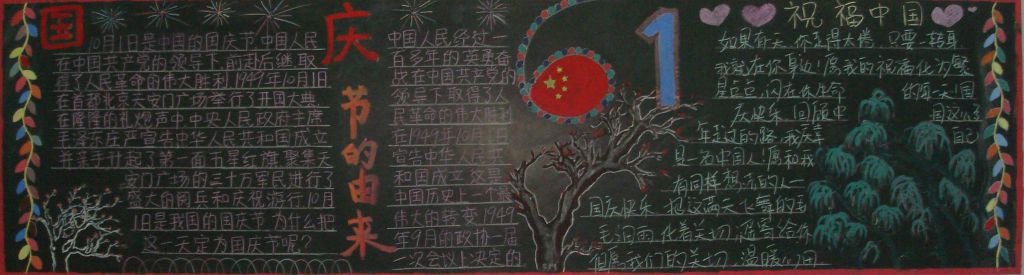 国庆节的由来
10月1日是中国的国庆节中国人民
在中国共产党的领导下前赴后继取
得了人民革命的伟大胜利1949年10月1日
在首都北京天安门广场举行了开国大典
在隆隆的礼炮声中中央人民政府主席
毛泽东庄严宣告中华人民共和国成立
并亲手升起了第一面五星红旗聚集天
安门广场的三十万军民进行了
盛大的阅兵和庆祝游行10月
1日是我国的国庆节为什么把
这一天定为国庆节呢?
中国人民经过一
百多年的英勇奋
战在中国共产党的
领导下取得了人
民革命的伟大胜利
在1949年10月1日
宣告中华人民共
和国成立这是
中国历史上一个
伟大的转变1949
年9月的政协一届
一次会议上决定的
1
祝福中国
如果有天你走得太倦只要一转身
我就在你身边!愿我的祝福化沙
星星闪在你生命的
庆祝回顾中国这么多
年走过的路我庆幸自己
是一名中国人!愿和我
有同样想法的人
国庆快乐把这满天飞舞的